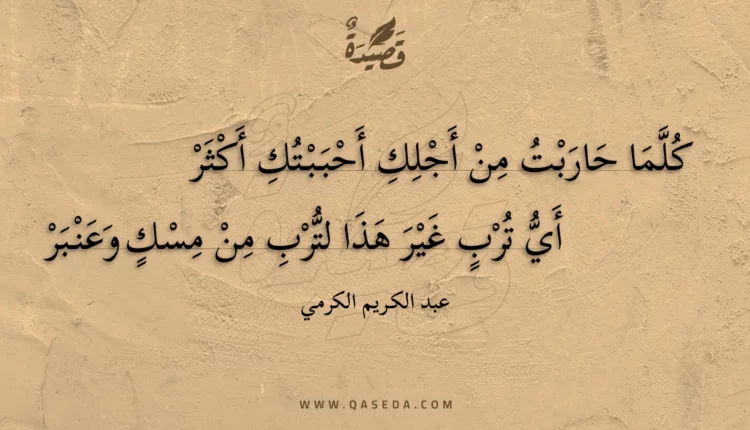 قَصِيدَةٌ
كُلَّمَا حَارَبْتُ مِنْ أَجْلِكِ أَحْبَبْتُكِ أَكْثَرْ
أَيُّ تُرْبٍ غَيْرَ هَذَا لتُّرْبِ مِنْ مِسْكٍ وَعَنْبَرْ
عبد الكريم الكرمي
WWW.QASEDA.COM